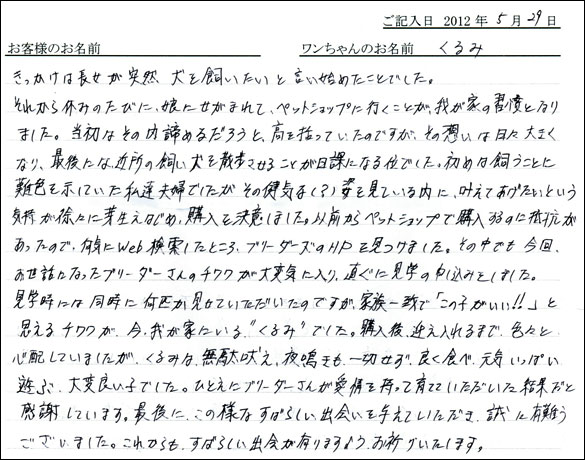 ご記入日 2012年 5月 29日
お客様のお名前 ワンちゃんのお名前 くるみ
きっかけは長女が突然 犬を飼いたいと言い始めたことでした。
それから休みのたびに、娘にせがまれて、ペットショップに行くことが、我が家の習慣となり
ました。当初はその内諦めるだろうと、高を括っていたのですが、その想いは日に日に大きく
なり、最後には近所の飼い犬を散歩させることが日課になる位でした。初めは飼うことに
難色を示していた私達夫婦でしたが その健気な(?)姿を見ている内に、叶えてあげたいという
気持が徐々に芽生えはじめ、購入を決意しました。以前からペットショップで購入するのに抵抗が
あったので、何気にWeb検索したところ、ブリーダーズのHPを見つけました。その中でも今回、
お世話になったブリーダーさんのチワワが大変気に入り、直ぐに見学の申込みをしました。
見学時には同時に何匹か見せていただいたのですが、家族一致で「この子がいい!!」と
思えるチワワが、今、我が家にいる"くるみ"でした。購入後、迎え入れるまで、色々と
心配していましたが、くるみは、無駄吠え、夜鳴きも一切せず、良く食べ、元気いっぱい
遊ぶ、大変良い子でした。ひとえにブリーダーさんが愛情を持って育てていただいた結果だと
感謝しています。最後に、この様なすばらしい出会いを与えていただき、誠に有難う
ございました。これからも、すばらしい出会が有りますよう、お祈りいたします。